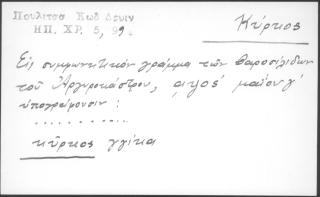 Πουλιτσα Κωδ Δευιν
ΗΠ. ΧΡ. 5, 99
Κύρκος
Εἰς συμφωνητικὸν γράμμα τῶν Βαροσιλιδων
τοῦ Ἀργυροκάστρου, αψοζ μαΐου γ'
ὑπογράφουσιν :
. . . . . . . . . .
κῦρκος γγίκα